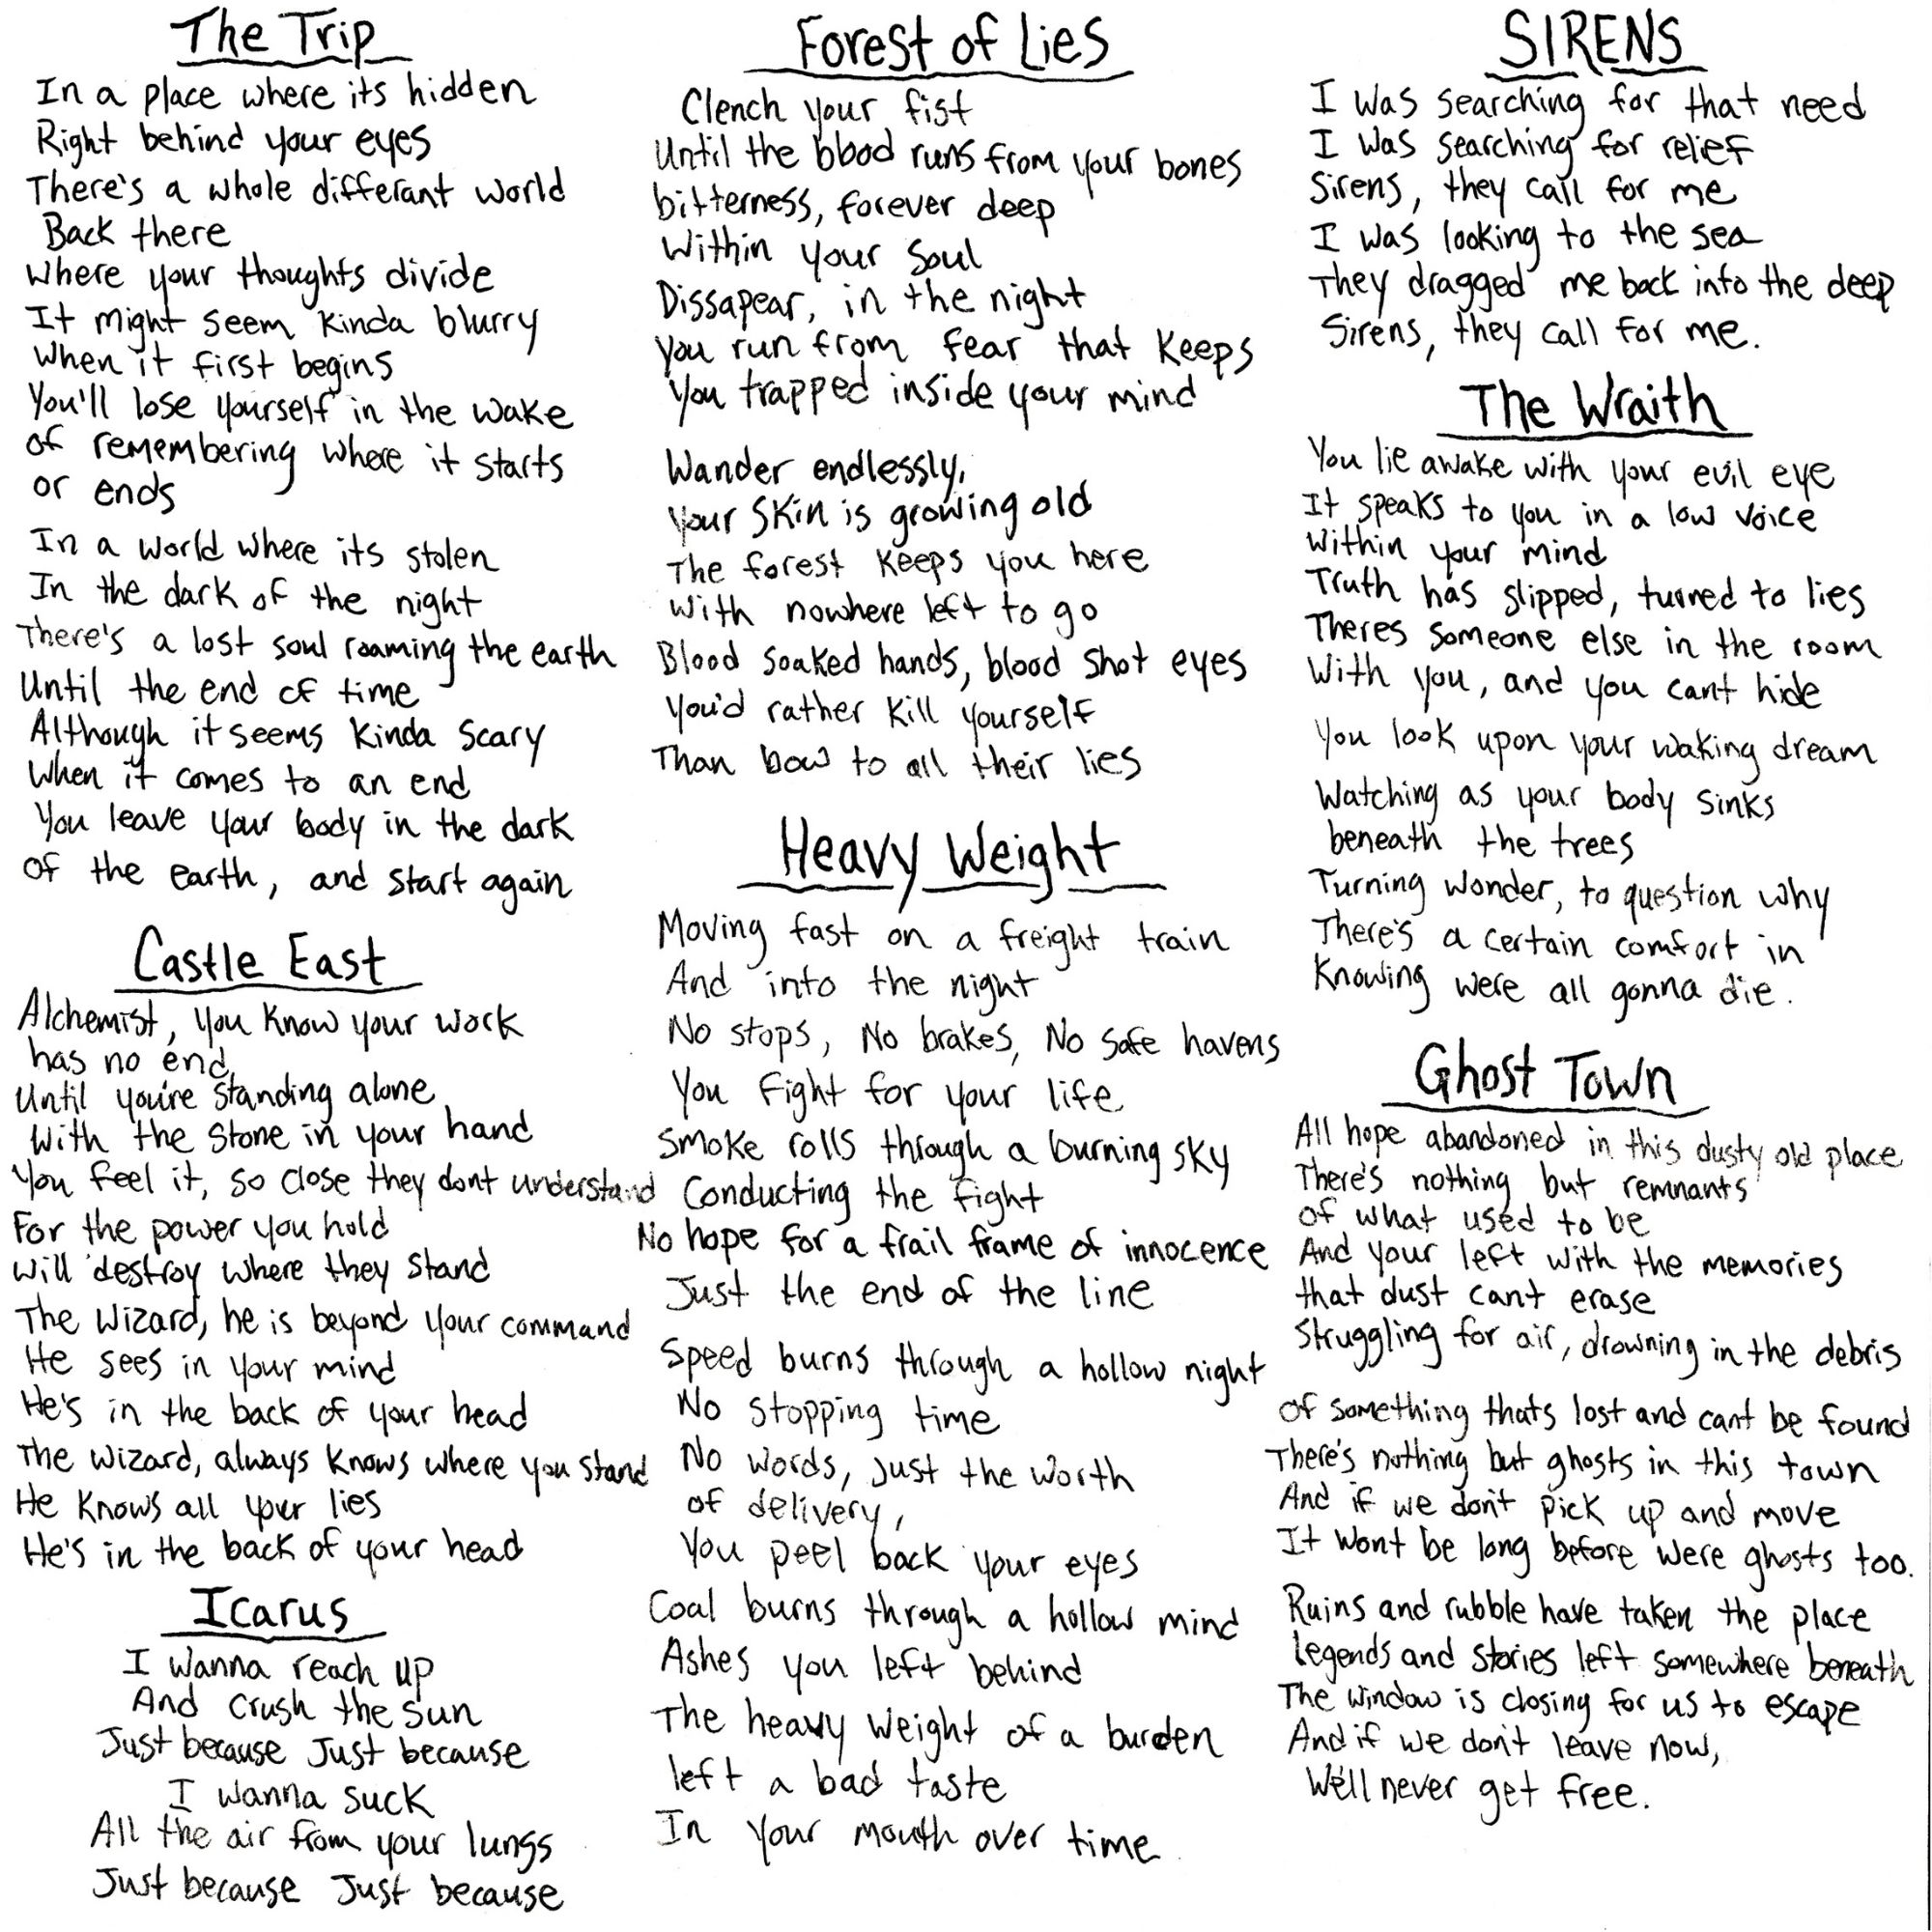 The Trip
In a place where its hidden
Right behind your eyes
There's a whole differant world
Back there
Where your thoughts divide
It might seem kinda blurry
When it first begins
You'll lose yourself in the wake
of remembering where it starts
or ends
In a world where its stolen
In the dark of the night
There's a lost soul roaming the earth
Until the end of time
Although it seems kinda scary
When it comes to an end
You leave your body in the dark
of the earth, and start again
Castle East
Alchemist, you know your work
has no end,
Until you're standing alone
With the stone in your hand
You feel it, so close they dont understand
For the power you hold
will destroy where they stand
The Wizard, he is beyond your command
He sees in your mind
He's in the back of your head
The Wizard, always knows where you stand
He knows all your lies
He's in the back of your head
Icarus
I wanna reach up
And crush the sun
Just because Just because
I wanna suck
All the air from your lungs
Just because Just because
Forest of Lies
Clench your fist
Until the blood runs from your bones
bitterness, forever deep
Within your soul
Dissapear, in the night
You run from fear that keeps
You trapped inside your mind
Wander endlessly,
Your skin is growing old
The forest keeps you here
With nowhere left to go
Blood soaked hands, blood shot eyes
You'd rather kill yourself
Than bow to all their lies
Heavy Weight
Moving fast on a freight train
And into the night
No stops, No brakes, No safe havens
You fight for your life
Smoke rolls through a burning sky
Conducting the fight
No hope for a frail frame of innocence
Just the end of the line
Speed burns through a hollow night
No stopping time
No words, just the worth
of delivery,
You peel back your eyes
Coal burns through a hollow mind
Ashes you left behind
The heavy weight of a burden
left a bad taste
In your mouth over time
SIRENS
I was searching for that need
I was searching for relief
Sirens, they call for me
I was looking to the sea
They dragged me back into the deep
Sirens, they call for me.
The Wraith
You lie awake with your evil eye
It speaks to you in a low voice
Within your mind
Truth has slipped, turned to lies
Theres someone else in the room
With you, and you cant hide
You look upon your waking dream
Watching as your body sinks
beneath the trees
Turning wonder, to question why
There's a certain comfort in
Knowing were all gonna die.
Ghost Town
All hope abandoned in this dusty old place
There's nothing but remnants
of what used to be
And your left with the memories
that dust cant erase
Struggling for air, drowning in the debris
of something thats lost and cant be found
There's nothing but ghosts in this town
And if we don't pick up and move
It wont be long before were ghosts too.
Ruins and rubble have taken the place
legends and stories left somewhere beneath
The window is closing for us to escape
And if we don't leave now,
We'll never get free.